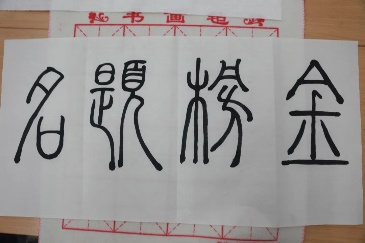 书画毡
金榜題名